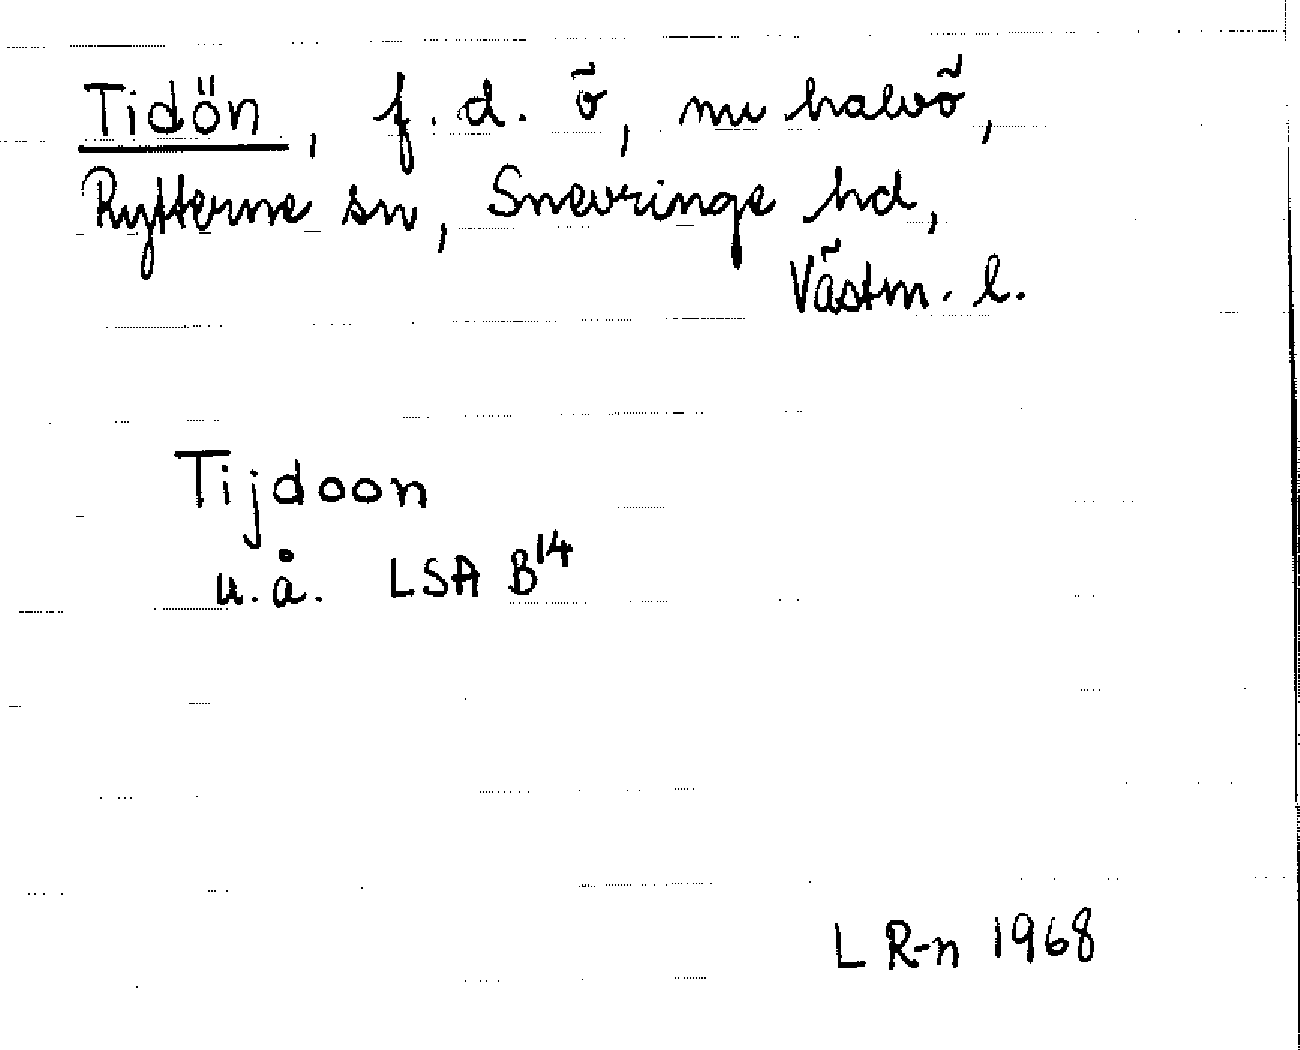 Tidön, f.d. ö, nu halvö,
Rytterne sn, Snevringe hd,
Västm. l.
Tijdoon
u.å. LSA B¹⁴
L R-n 1968